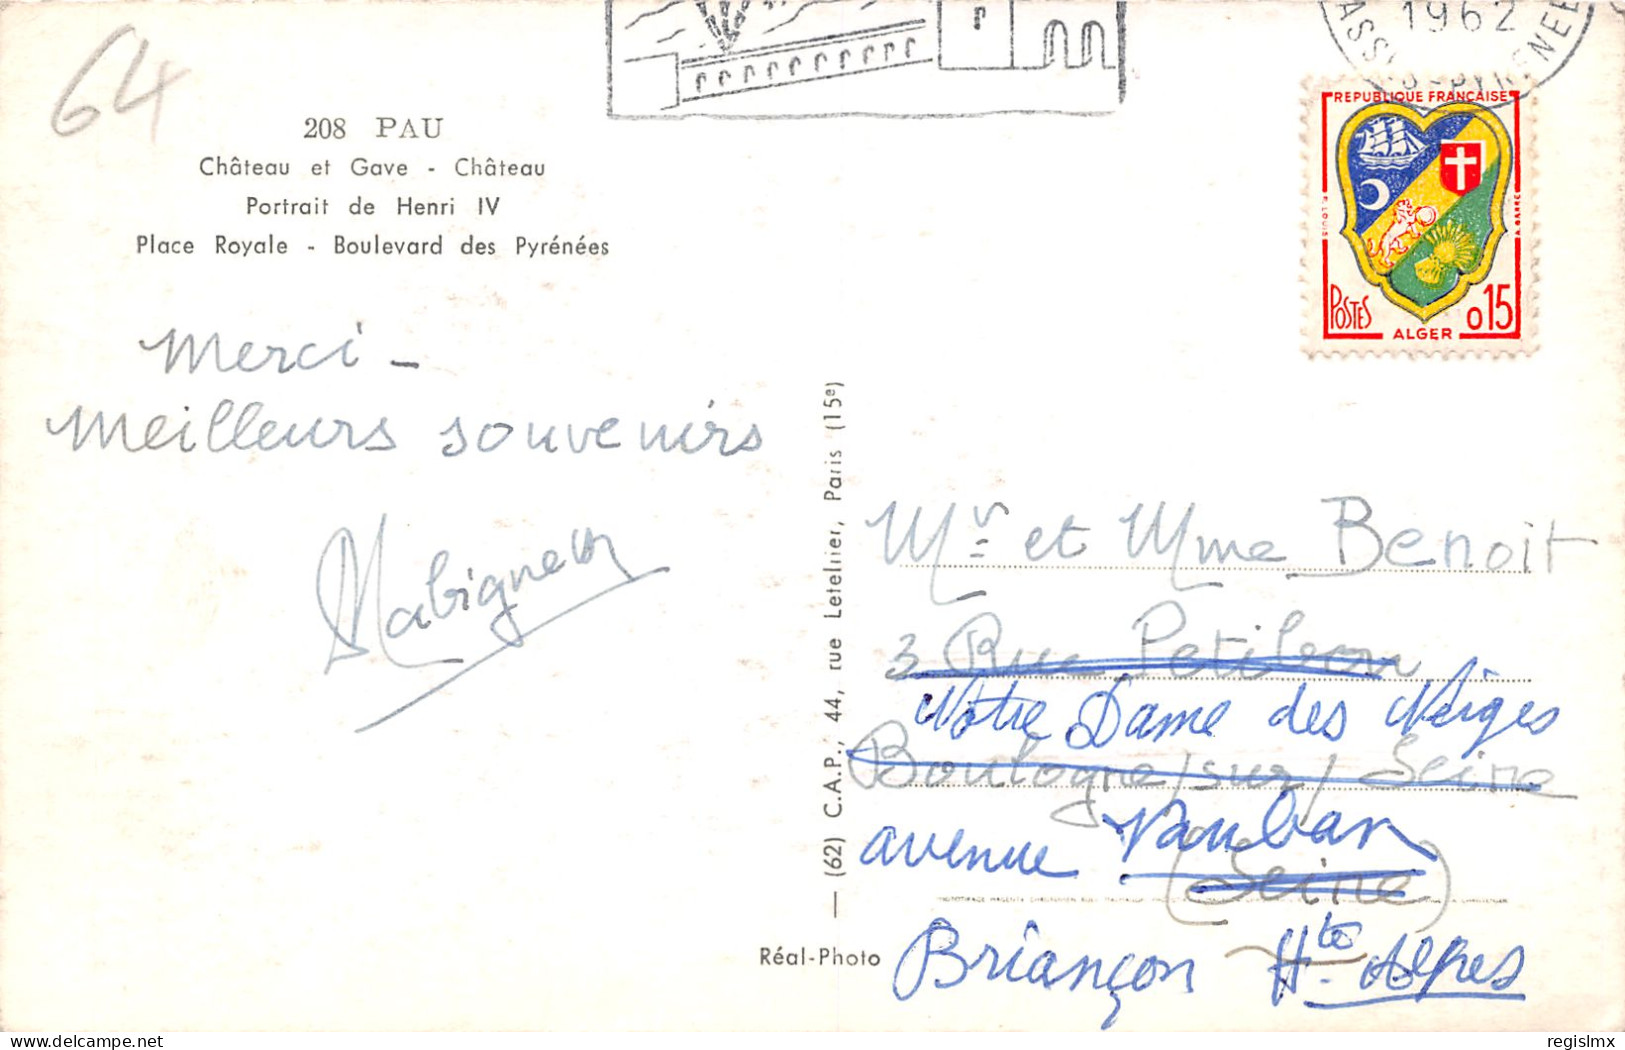 64
208 PAU
Château et Gave - Château
Portrait de Henri IV
Place Royale - Boulevard des Pyrénées
Merci -
Meilleurs souvenirs
1962
REPUBLIQUE FRANÇAISE
POSTES
ALGER
0,15
(62) C.A.P., 44, rue Letellier, Paris (15e)
Réal-Photo
Mr et Mme Benoit
3 Rue Petibon
Notre Dame des Neiges
Boulogne/sur/Seine
avenue Vauban
(Seine)
Briançon Hte Alpes
delcampe.net
regislmx